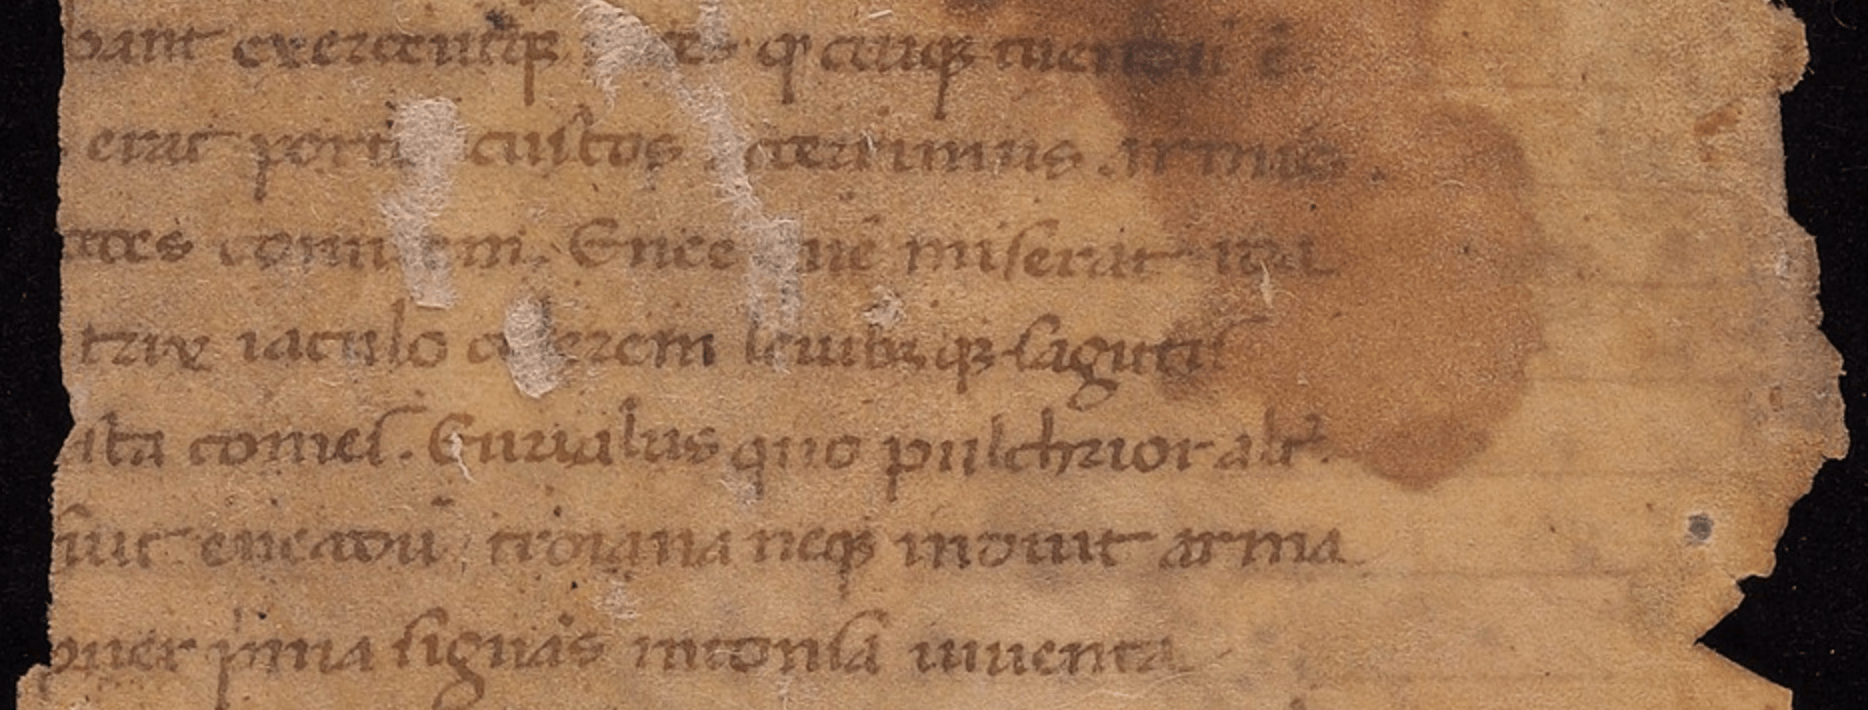 bant exercentq; ces qđ cuiq; tuendũ ẽ.
erat porte custos acerrimus armis.
ates comitem. Enee quẽ miserat ida
trix iaculo celerem leuib; q; sagittis
xta comes. Eurialus quo pulchrior alt̃.
fuit eneadũ troiana neq; induit arma
puer prima signãs intonsã iuuenta